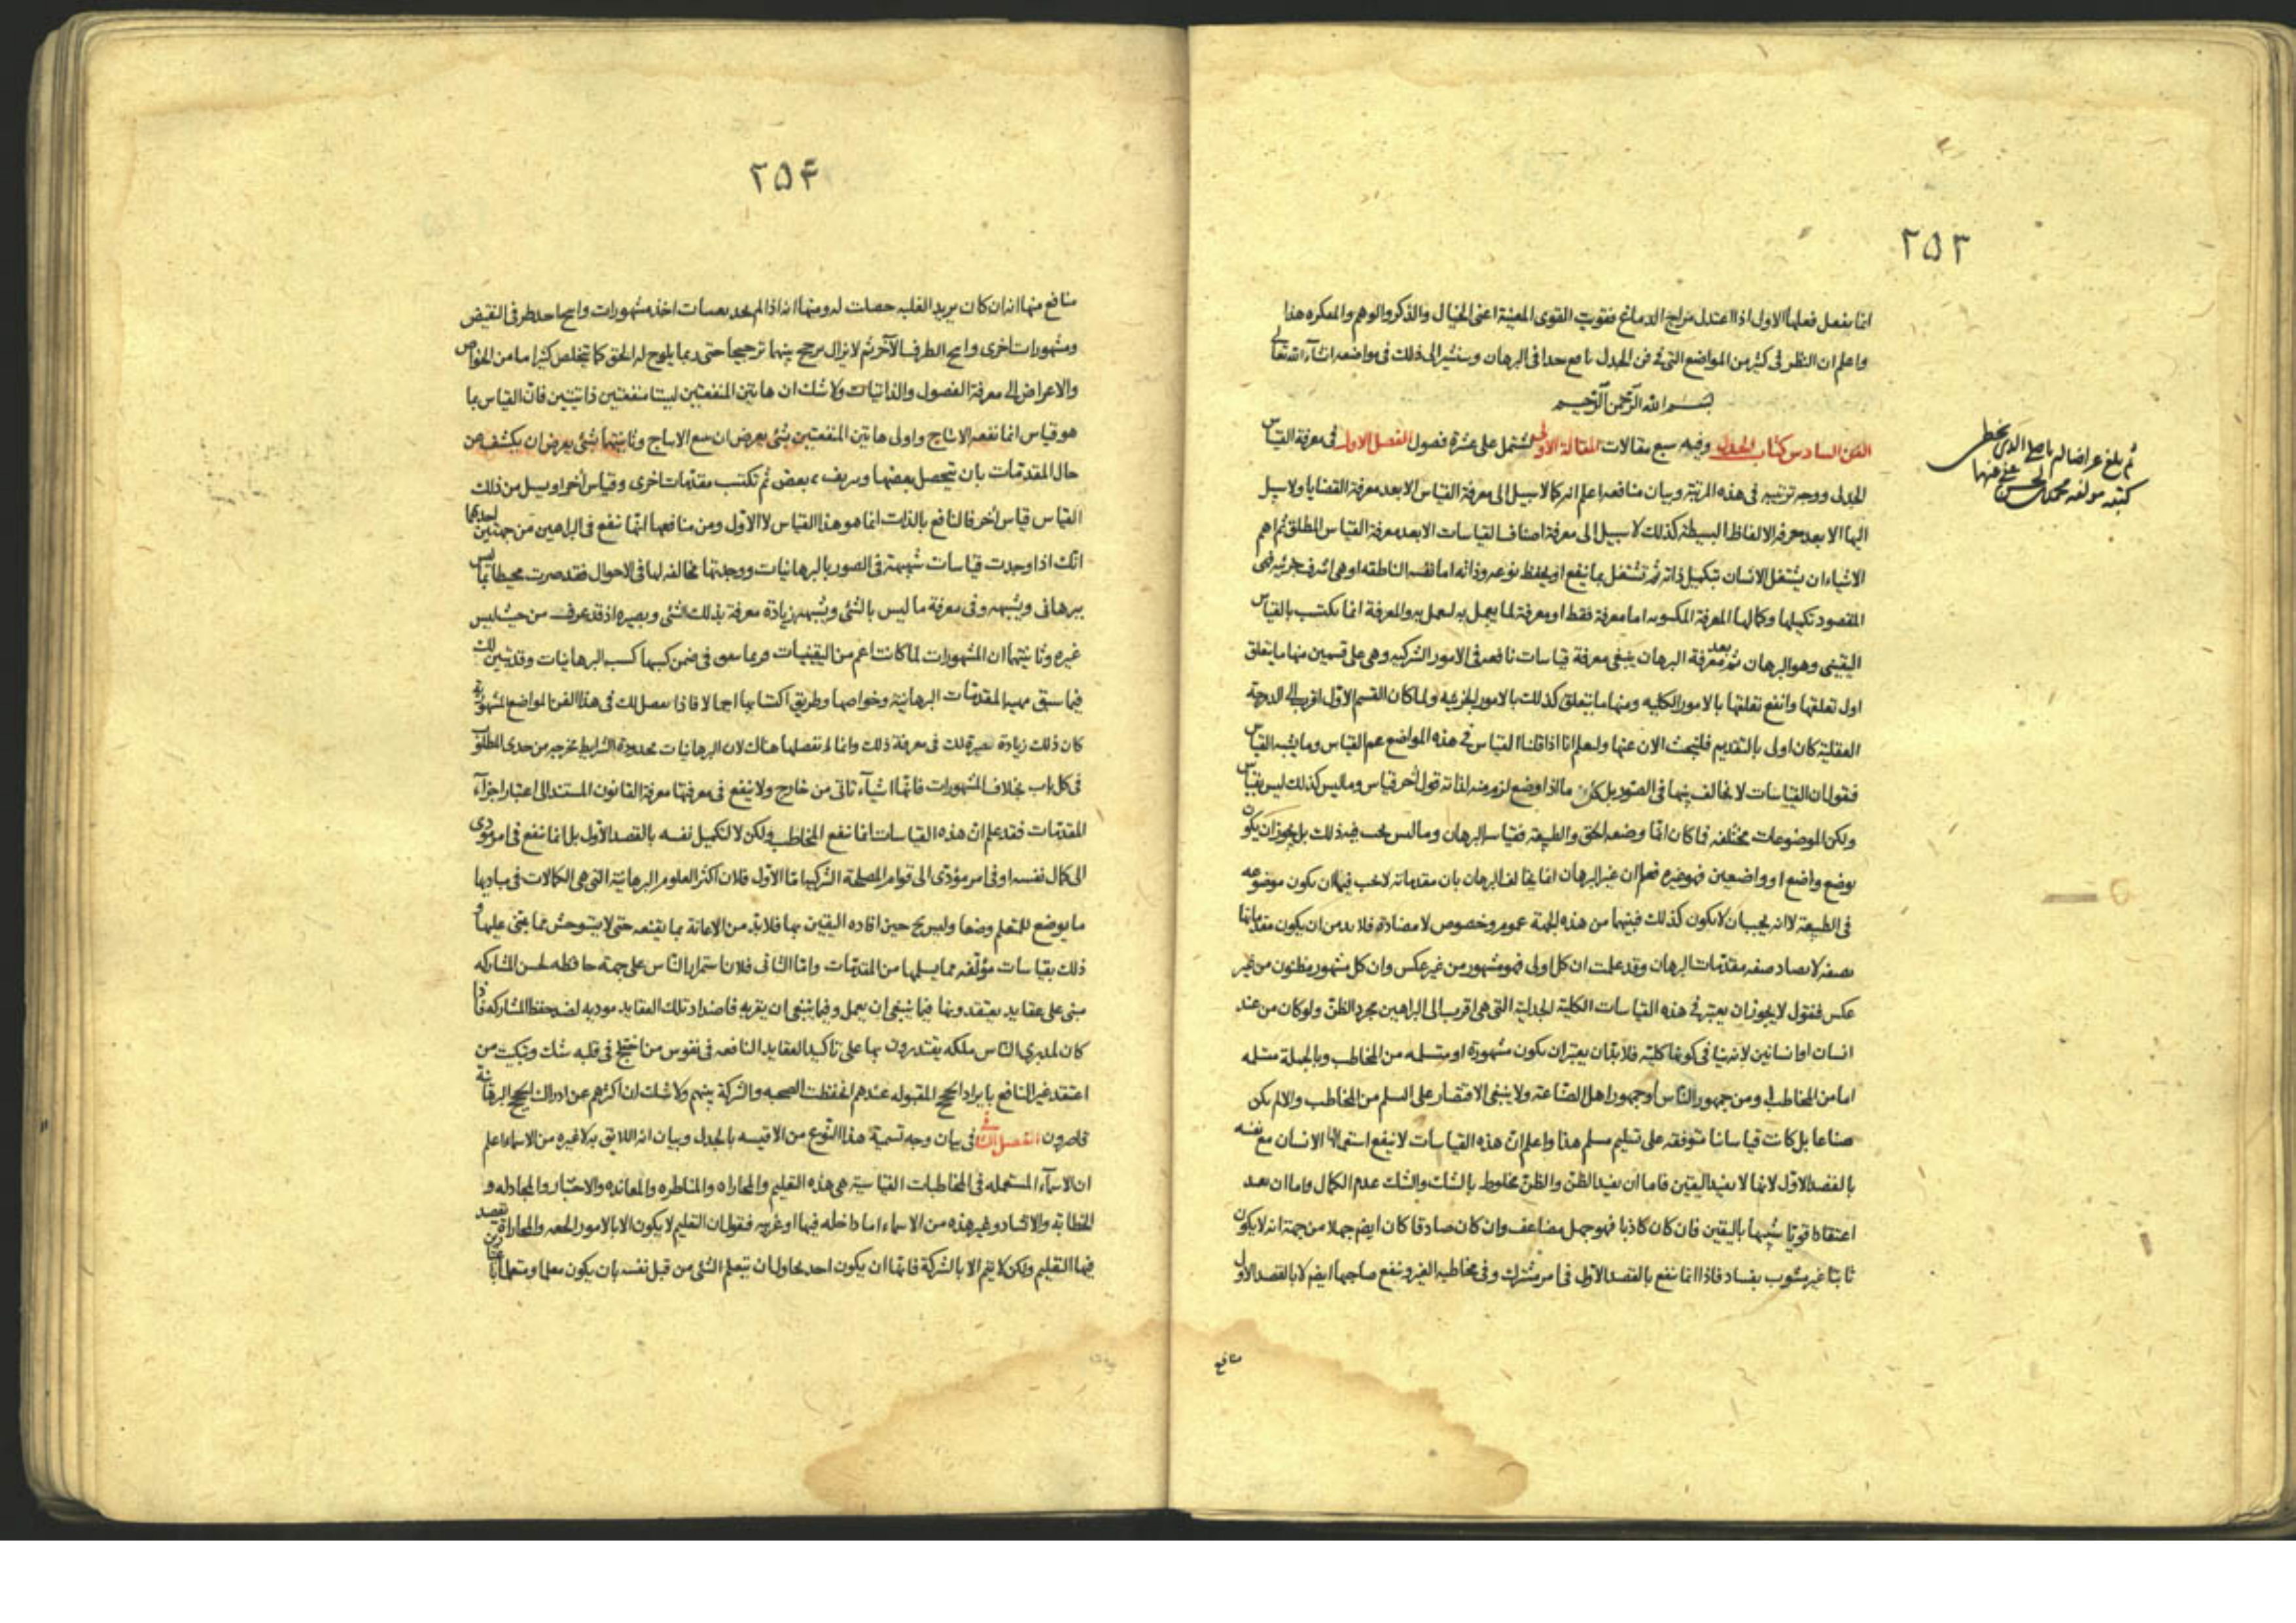 ٢٥٣
انما يفعل فعلها الاول اذا اعتدل مزاج الدماغ فقويت القوى المعينة اعنى الخيال والذكر والوهم والمفكره هذا
واعلم ان النظر فى كثير من المواضع التى فى فن الجدل نافع جدا فى البرهان وسنشير الى ذلك فى مواضعه انشآء الله تعالى
بسم الله الرحمن الرحيم
الفن السادس كتاب الجدل وفيه سبع مقالات المقالة الاولى تشتمل على عشرة فصول الفصل الاول فى معرفة القياس
الجدلى ووجه ترتيبه فى هذه المرتبة وبيان منافعه اعلم انه كما لا سبيل الى معرفة القياس الا بعد معرفة القضايا ولا سبيل
اليها الا بعد معرفة الالفاظ البسيطة كذلك لا سبيل الى معرفة اصناف القياسات الا بعد معرفة القياس المطلق ثم اهم
الاشياء ان يشتغل الانسان بتكميل ذاته ثم تشتغل بما ينفع او يحفظ نوعه وذاته اما نفسه الناطقه او هى اشرف جزئيه فهى
المقصود تكميلها وكمالها المعرفة المكسوبه اما معرفة فقط او معرفة لما يعمل به ليعمل به والمعرفة انما تكتسب بالقياس
اليقينى وهو البرهان ثم بعد معرفة البرهان ينبغى معرفة قياسات نافعه فى الامور الشركيه وهى على قسمين منها ما يتعلق
اول تعلقها وانفع تعلقها بالامور الكليه ومنها ما يتعلق كذلك بالامور الجزئيه ولما كان القسم الاول اقرب الى الدرجة
العقلية كان اولى بالتقديم فلنبحث الان عنها وليعلم انا اذا قلنا القياس فى هذه المواضع عم القياس وما يشبه القياس
فنقول ان القياسات لا تخالف بينها فى الصور بل كل ما اذا وضع لزم منه لذاته قول آخر قياس وما ليس كذلك ليس بقياس
ولكن الموضوعات مختلفه فما كان انما وضعه الحق والطبيعه فقياس البرهان وما ليس يجب فيه ذلك بل يجوز ان يكون
بوضع واضع او واضعين فهو غيره فعلم ان غير البرهان انما يخالف البرهان بان مقدماته لا تجب فيها ان يكون موضوعه
فى الطبيعة لا انه يجب ان لا يكون كذلك فبينهما من هذه الجهة عموم وخصوص لا مضادة فلا بد من ان يكون مقدماتها
بصفة لا تضاد صفه مقدمات البرهان وقد علمت ان كل اولى فهو مشهور من غير عكس وان كل مشهور مظنون من غير
عكس فنقول لا يجوز ان يعتبر فى هذه القياسات الكلية الجدلية التى هى اقرب الى البراهين مجرد الظن ولو كان من عند
انسان او انسانين لانه ينافى كونها كلية فلا بد ان يعتبر ان يكون مشهورة او متسلمه من المخاطب وبالجملة متسلمه
اما من المخاطب او من جمهور الناس او جمهور اهل الصناعة ولا ينبغى الاقتصار على التسلم من المخاطب والا لم يكن
صناعا بل كانت قياساتنا متوقفه على تسليم مسلم هذا واعلم ان هذه القياسات لا ينفع استعمالها الانسان مع نفسه
بالقصد الاول لانها لا يفيد اليقين فاما ان يفيد الظن والظن مخلوط بالشك والشك عدم الكمال واما ان يفيد
اعتقادا قويا شبيها باليقين فان كان كاذبا فهو جهل مضاعف وان كان صادقا كان ايضم جهلا من جهة انه لا يكون
ثابتا غير مشوب بفساد فاذا انما تنفع بالقصد الاول فى امر مشترك وفى مخاطبه الغير وتنفع صاحبها ايضم لا بالقصد الاول
منافع
ثم بلغ عراضا
كتبه مولفه محمد
٢٥۴
منافع منها انه ان كان يريد الغلبه حصلت له ومنها انه اذا لم يجد يقينيات اخذ مشهورات وانتج احد طرفى النقيض
ومشهورات اخرى وانتج الطرف الآخر ثم لا يزال يرجح بينهما ترجيحا حتى ربما يلوح له الحق كما يتخلص كثيرا ما من الخواص
والاعراض الى معرفة الفصول والذاتيات ولا شك ان هاتين المنفعتين ليستا منفعتين ذاتيتين فان القياس بما
هو قياس انما نفعه الانتاج واولى هاتين المنفعتين بشئ يعرض ان يتبع الانتاج وثانيتهما بشئ يعرض ان يكشف عن
حال المقدمات بان تتحصل بعضها وتزيف بعض ثم تكتسب مقدمات اخرى وقياس آخر او يبدل من ذلك
القياس قياس آخر فالنافع بالذات انما هو هذا القياس لا الاول ومن منافعها انها تنفع فى البراهين من جهتين احديهما
انك اذا وجدت قياسات شبيهة فى الصور بالبرهانيات ووجدتها مخالفه لها فى الاحوال فقد صرت محيطا بما ليس
ببرهانى ويشبهه وفى معرفة ما ليس بالشئ ويشبهه زيادة معرفة بذلك الشئ وبصيره اذ قد عرف من حيث ليس
غيره وثانيتهما ان المشهورات لما كانت اعم من اليقينيات فربما يتفق فى ضمن كسبها كسب البرهانيات وقد تبين لك
فيما سبق مهية المقدمات البرهانية وخواصها وطريق اكتسابها اجمالا فاذا نفصل لك فى هذا الفن المواضع المشهورة
كان ذلك زيادة بصيرة لك فى معرفة ذلك وانما لم نفصلها هناك لان البرهانيات محدودة الشرايط مخرجه من حدى المطلوب
فى كل باب بخلاف المشهورات فانها اشيآء تاتى من خارج ولا ينفع فى معرفتها معرفة القانون المستند الى اعتبار اجزآء
المقدمات فقد علم ان هذه القياسات انما تنفع المخاطب ولكن لا لتكميل نفسه بالقصد الاول بل انما تنفع فى امر مؤدى
الى كمال نفسه او فى امر مؤدى الى قوام المصلحة الشركيه اما الاول فلان اكثر العلوم البرهانية التى هى الكمالات فى مباديها
ما يوضع للمتعلم وضعا وليس يح حين افاده اليقين بها فلا بد من الاعانة بما يقنعه حتى لا يستوحش عما يبتنى عليها و
ذلك بقياسات مؤلفه مما يسلمها من المقدمات واما الثانى فلان استمرار الناس على جهة حافظه لحسن المشاركه
مبنى على عقايد يعتقدونها فيما ينبغى ان يعمل وفيما ينبغى ان يقر به فاضداد تلك العقايد موديه لضد حفظ المشاركه فاذا
كان لمدبرى الناس ملكه يقتدرون بها على تاكيد العقايد النافعه فى نفوس من اختلج فى قلبه شك وتبكيت من
اعتقد غير النافع بايراد الحجج المقبوله عندهم انحفظت الصحبه والشركة بينهم ولا شك ان اكثرهم عن ادراك الحجج البرهانية
قاصرون الفصل الثانى فى بيان وجه تسمية هذا النوع من الاقيسه بالجدل وبيان انه اللايق به لا غيره من الاسماء اعلم
ان الاسمآء المستعمله فى المخاطبات القياسية هى هذه التعليم والمجاراه والمناظره والمعانده والاختبار والمجادله و
الخطابة والانشاد وغير هذه من الاسماء اما داخله فيها او غريبه فنقول ان التعليم لا يكون الا بالامور الحقه والمجاراة يقصد
فيها التعليم ولكن لا يتم الا بالشركة فانها ان يكون احد يحاول ان يتعلم الشئ من قبل نفسه بان يكون معلما ومتعلما